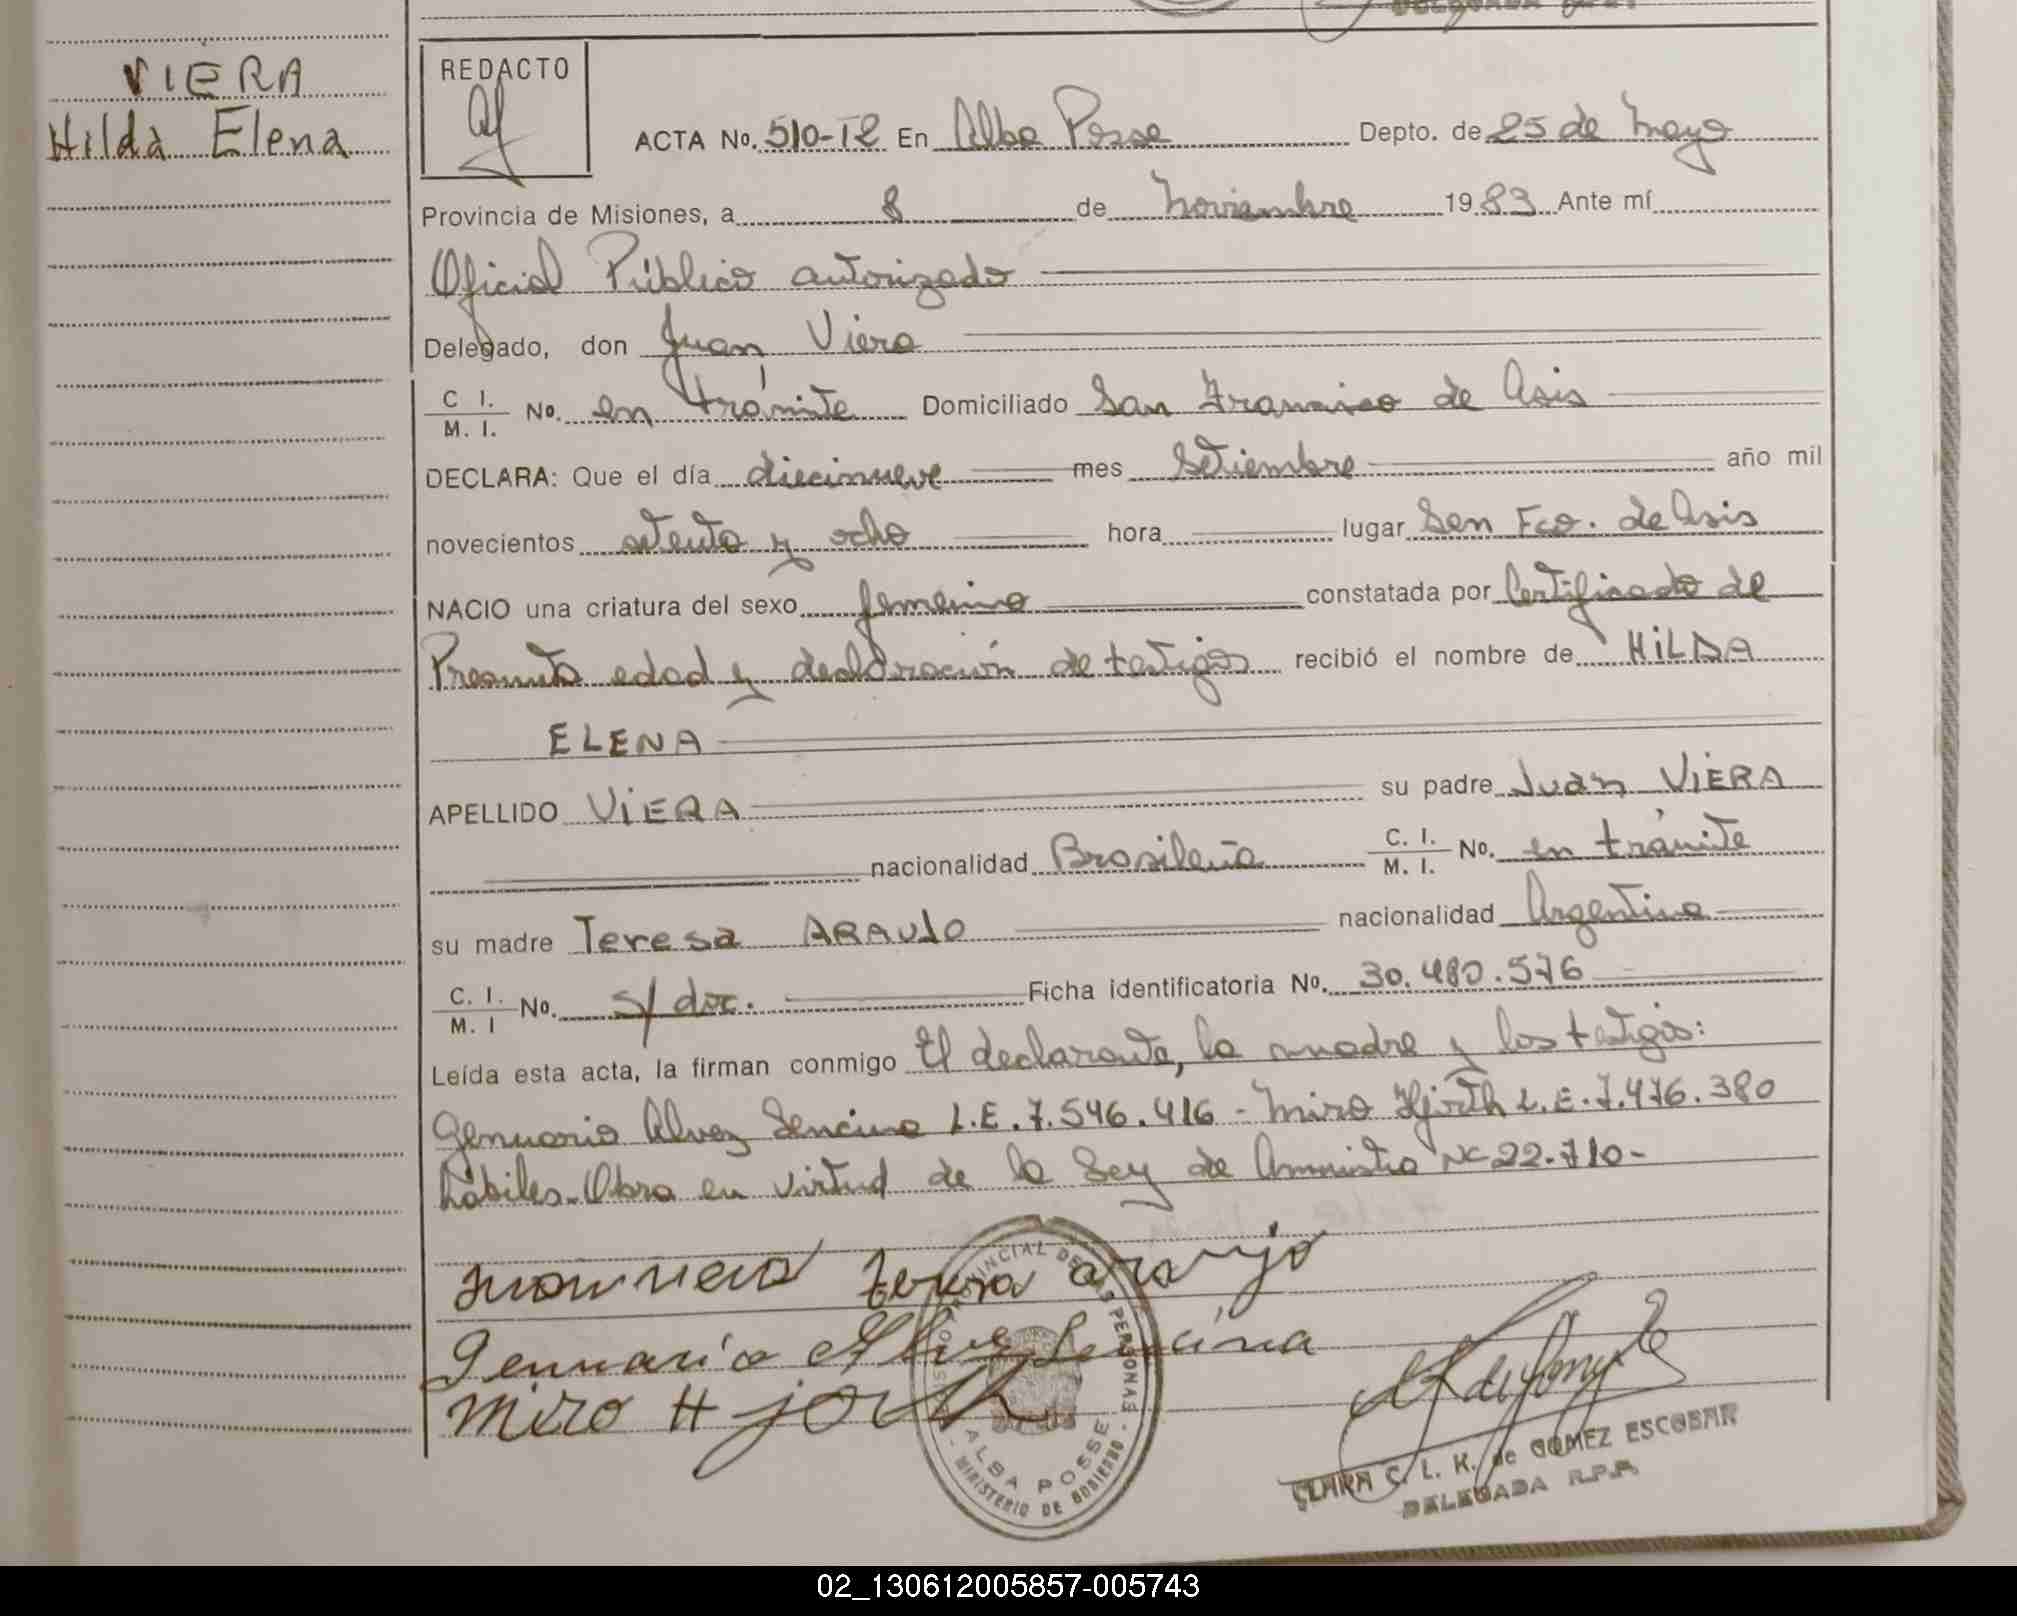 VIERA
Hilda Elena
REDACTO
ACTA No. 510-TE En Alba Posse Depto. de 25 de Mayo
Provincia de Misiones, a 8 de Noviembre 1983 Ante mí
Oficial Público autorizado
Delegado, don Juan Viera
C I. / M. I. No. en trámite Domiciliado San Francisco de Asis
DECLARA: Que el día diecinueve mes Setiembre año mil
novecientos setenta y ocho hora lugar San Fco. de Asis
NACIO una criatura del sexo femenino constatada por Certificado de
Presunta edad y declaración de testigos recibió el nombre de HILDA
ELENA
APELLIDO VIERA su padre Juan VIERA
nacionalidad Brasileña C. I. / M. I. No. en trámite
su madre Teresa ARAUJO nacionalidad Argentina
C. I. / M. I No. s/ doc. Ficha identificatoria No. 30.480.576
Leída esta acta, la firman conmigo El declarante, la madre y los testigos:
Genuario Alvez Sencina L.E. 7.546.416 - Miro Hjorth L.E. 7.476.380
hábiles. Obra en virtud de la Ley de Amnistia Nº 22.710-
Juan Viera Teresa Araujo
Genuario Alvez Sencina
Miro Hjorth
PROVINCIAL DE LAS PERSONAS
ALBA POSSE
MINISTERIO DE GOBIERNO
CLARA C. L. K. de GOMEZ ESCOBAR
DELEGADA R.P.P.
02_130612005857-005743